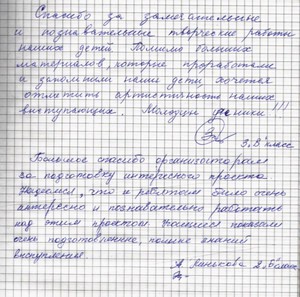 Спасибо за замечательные
и познавательные творческие работы
наших детей. Помимо больших
материалов, которые проработали
и запомнили наши дети, хочется
отметить артистичность наших
выступающих. Молодцы !!!
3 "В" класс
Большое спасибо организаторам
за подготовку интересного проекта
Надеемся, что и ребятам было очень
интересно и познавательно работать
над этим проектом. Учащиеся показали
очень подготовленные, полные знаний
выступления.
А. 2 "В" класс